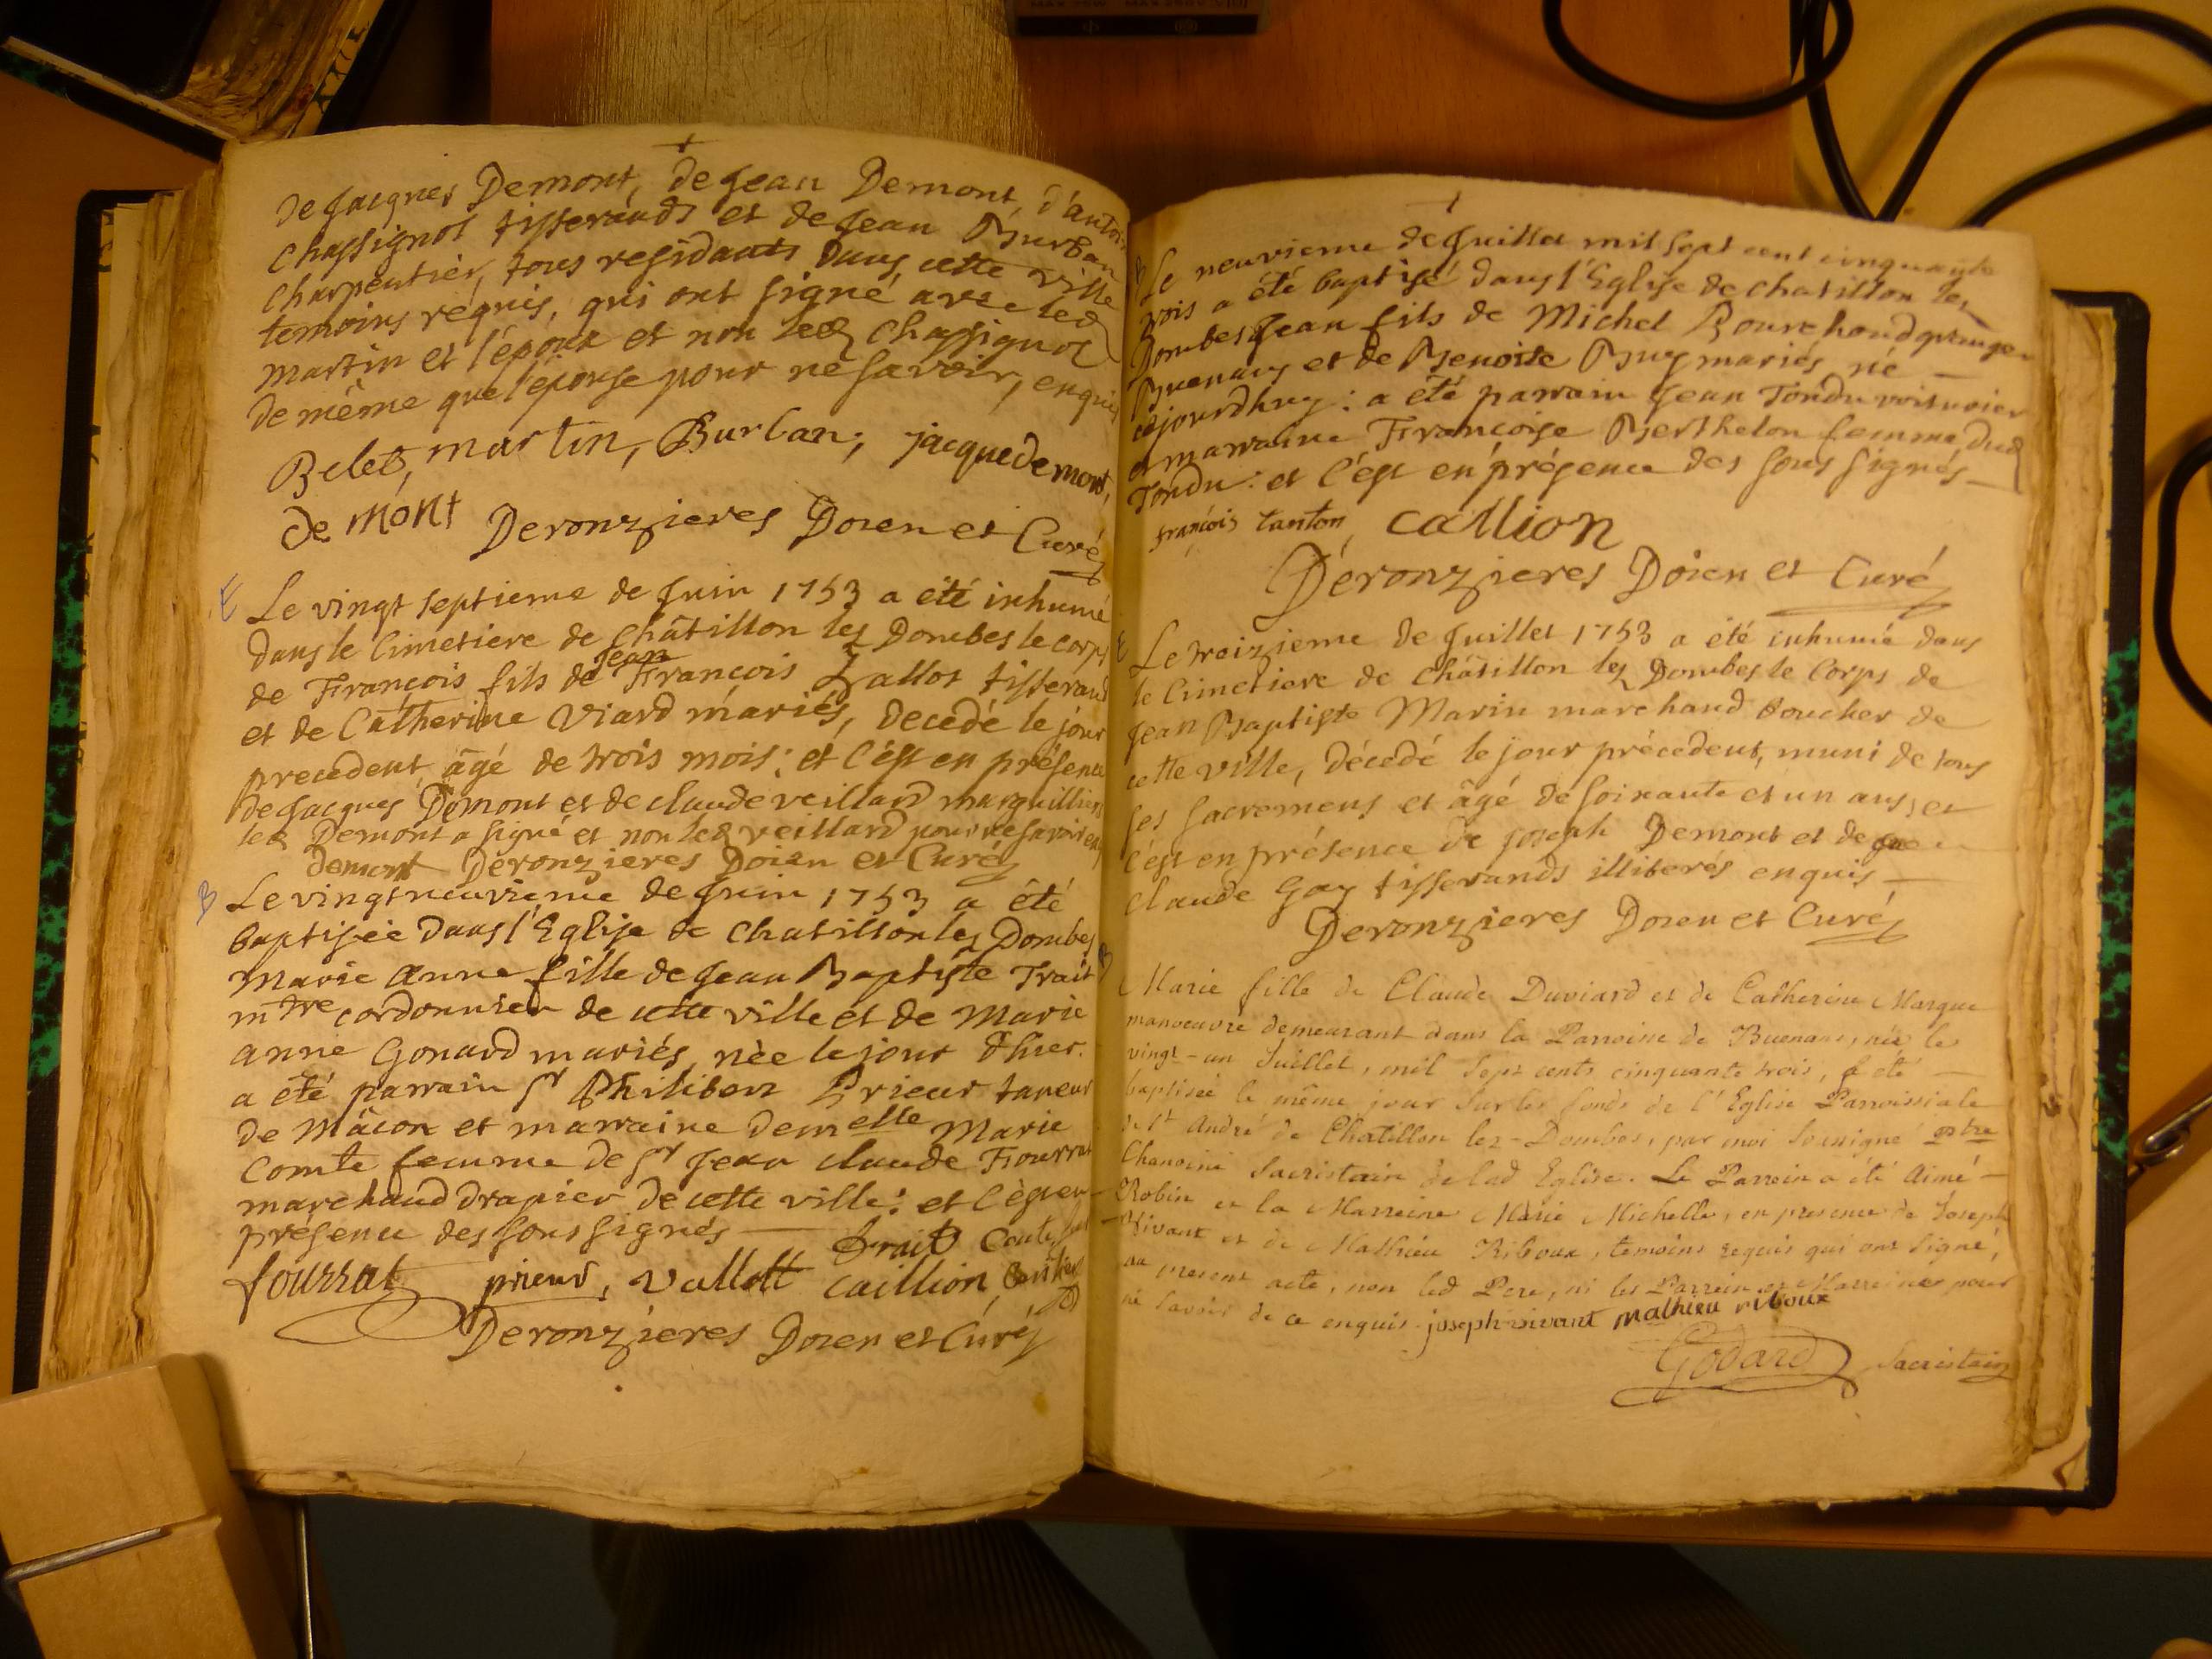 de Jacques Demont, de Jean Demont, d'antoine
chassignol tisserands et de Jean Burban
charpentier, tous residants dans cette ville
temoins requis, qui ont signé avec led
martin et l'époux et non led chassignol
de même que l'épouse pour ne savoir, enquis
Belet, martin, Burban, jacque demont,
de mont Deronzieres Doien et Curé
E Le vingt septieme de Juin 1753 a été inhumé
dans le Cimetiere de Châtillon lez Dombes le corps
de François fils de Jean François Lallot tisserand
et de Catherine Viard mariés, décédé le jour
precedent, âgé de trois mois; et c'ést en présence
de Jacques Demont et de claude veillard marguilliers
led Demont a signé et non led veillard pour ne savoir enq
demont Deronzieres Doien et Curé
B Le vingt neuvieme de Juin 1753 a été
baptisée dans l'Eglise de chatillon lez Dombes
Marie Anne fille de Jean Baptiste Trait
mtre cordonnier de cette ville et de Marie
anne Gonard mariés, née le jour d'hier.
a été parrain sr Philibert Prieur taneur
de Mâcon et marraine demelle Marie
Comte femme de sr Jean claude Fourrat
marchand drapier de cette ville: et c'ést en
présence des soussignés
trait Comte
fourrat prieur, vallott caillion
Deronzieres Doien et Curé
B Le neuvieme de Juillet mil sept cent cinquante
trois a été baptisé dans l'Eglise de chatillon lez
Dombes Jean fils de Michel Bourchoud granger
Buenans et de Benoite Buy mariés, né
cejourdhuy: a été parrain Jean Tondu voiturier
et marraine Françoise Berthelon femme dud
Tondu: et c'ést en présence des soussignés
françois tanton, caillion
Deronzieres Doien et Curé
E Le treizieme de Juillet 1753 a été inhumé dans
le Cimetiere de châtillon lez Dombes le Corps de
Jean Baptiste Marin marchand boucher de
cette ville, décédé le jour précedent, muni de tous
ses sacremens et âgé de soixante et un ans, et
c'ést en présence de Joseph Demont et de
claude Gay tisserands illiterés enquis
Deronzieres Doien et Curé
B Marie fille de Claude Duviard et de Catherine Marque
manoeuvre demeurant dans la Parroisse de Buenans, née le
vingt-un Juillet, mil sept cents cinquante trois, a été
baptisée le même jour sur les fonds de l'Eglise Parroissiale
de St André de Chatillon lez-Dombes, par moi soussigné
Chanoine Sacristain de lad Eglise. Le Parrein a été Aimé
Robin et la Marreine Marie Michelle, en presence de Joseph
Vivant et de Mathieu Riboux, temoins requis qui ont signé,
au present acte, non led Pere, ni les Parrein et Marreine pour
ne savoir de ce enquis. joseph vivant mathieu riboux
Godard Sacristain